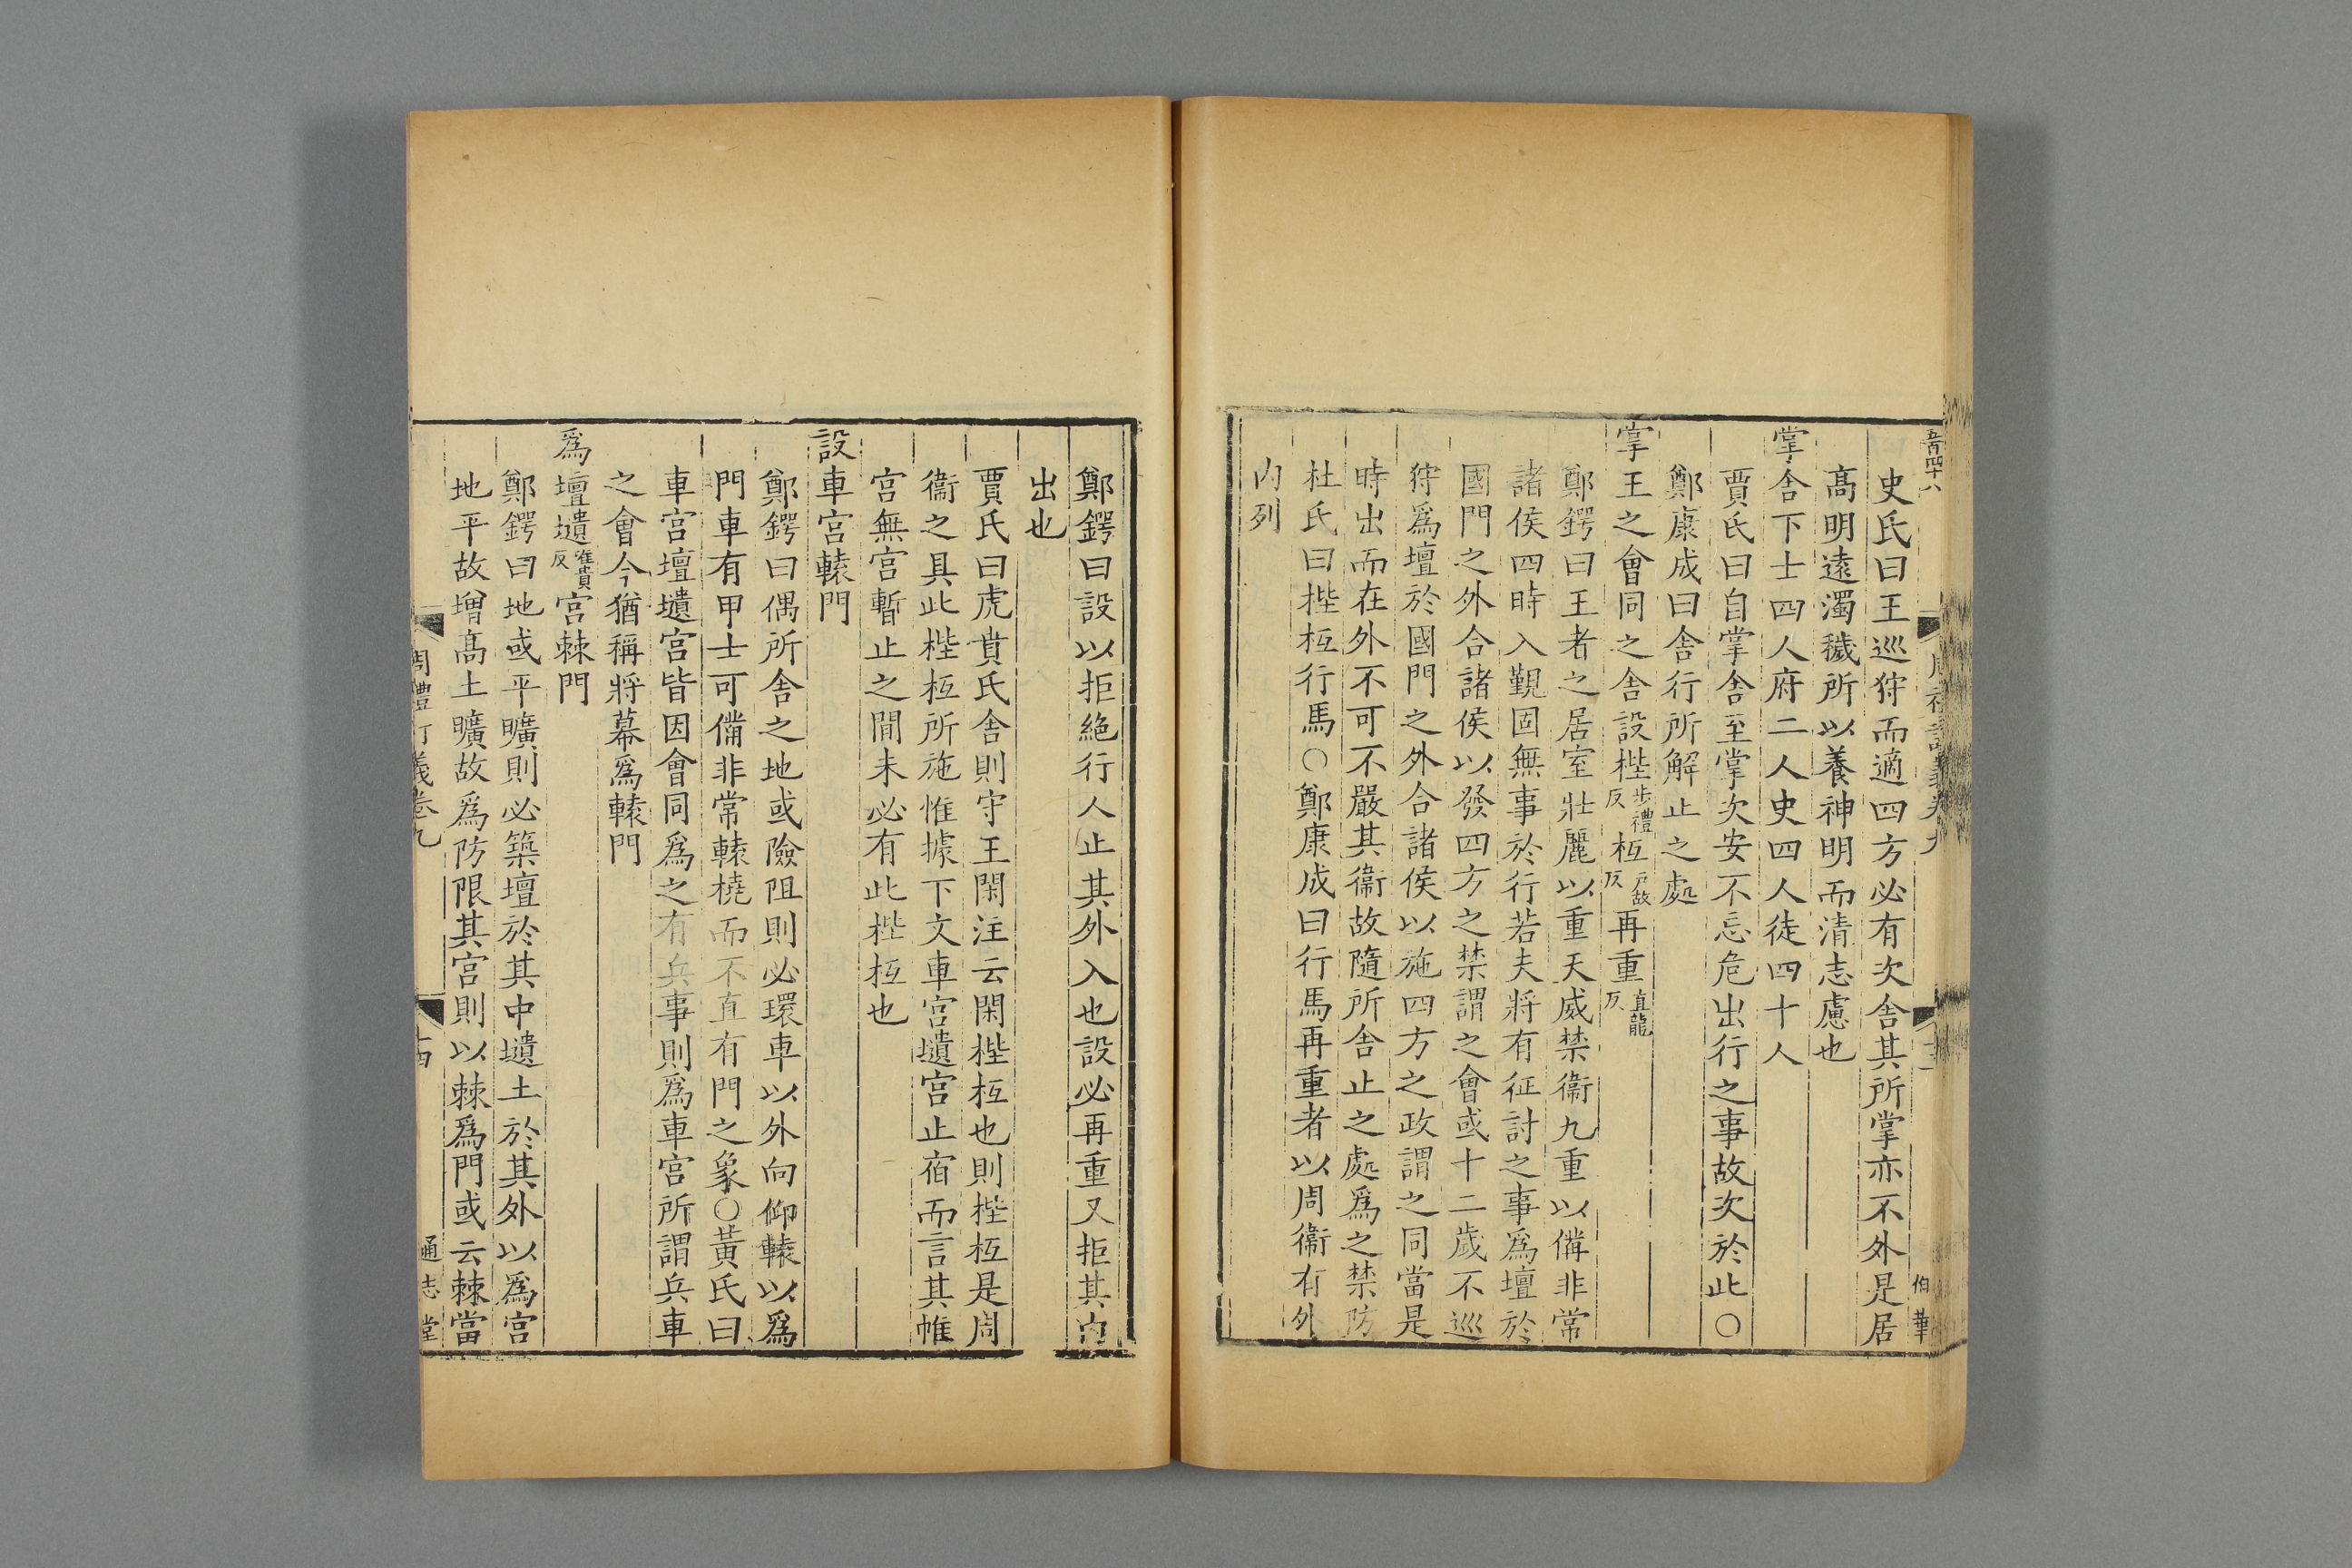 五百四十八
史氏曰王巡狩而適四方必有次舎其所掌亦不外是居
髙明遠濁穢所以養神明而清志慮也
掌舎下士四人府二人史四人徒四十人
賈氏曰自掌舎至掌次安不忘危出行之事故次於此〇
鄭康成曰舎行所解止之處
掌王之會同之舎設梐步禮反枑戸故反再重直龍反
鄭鍔曰王者之居室壯麗以重天威禁衞九重以備非常
諸侯四時入覲固無事於行若夫將有征討之事爲壇於
國門之外合諸侯以發四方之禁謂之會或十二歲不巡
狩爲壇於國門之外合諸侯以施四方之政謂之同當是
時出而在外不可不嚴其衞故隨所舎止之處爲之禁防
杜氏曰梐枑行馬〇鄭康成曰行馬再重者以周衞有外
内列
伯華
鄭鍔曰設以拒絶行人止其外入也設必再重又拒其内
出也
賈氏曰虎賁氏舎則守王閑注云閑梐枑也則梐枑是周
衞之具此梐枑所施惟據下文車宫壝宫止宿而言其帷
宫無宫暫止之間未必有此梐枑也
設車宫轅門
鄭鍔曰偶所舎之地或險阻則必環車以外向仰轅以爲
門車有甲士可備非常轅橈而不直有門之象〇黃氏曰
車宫壇壝宫皆因會同爲之有兵事則爲車宫所謂兵車
之會今猶稱將幕爲轅門
爲壇壝唯貴反宫棘門
鄭鍔曰地或平曠則必築壇於其中壝土於其外以爲宫
地平故增髙土曠故爲防限其宫則以棘爲門或云棘當
周禮訂義卷九
十四
通志堂